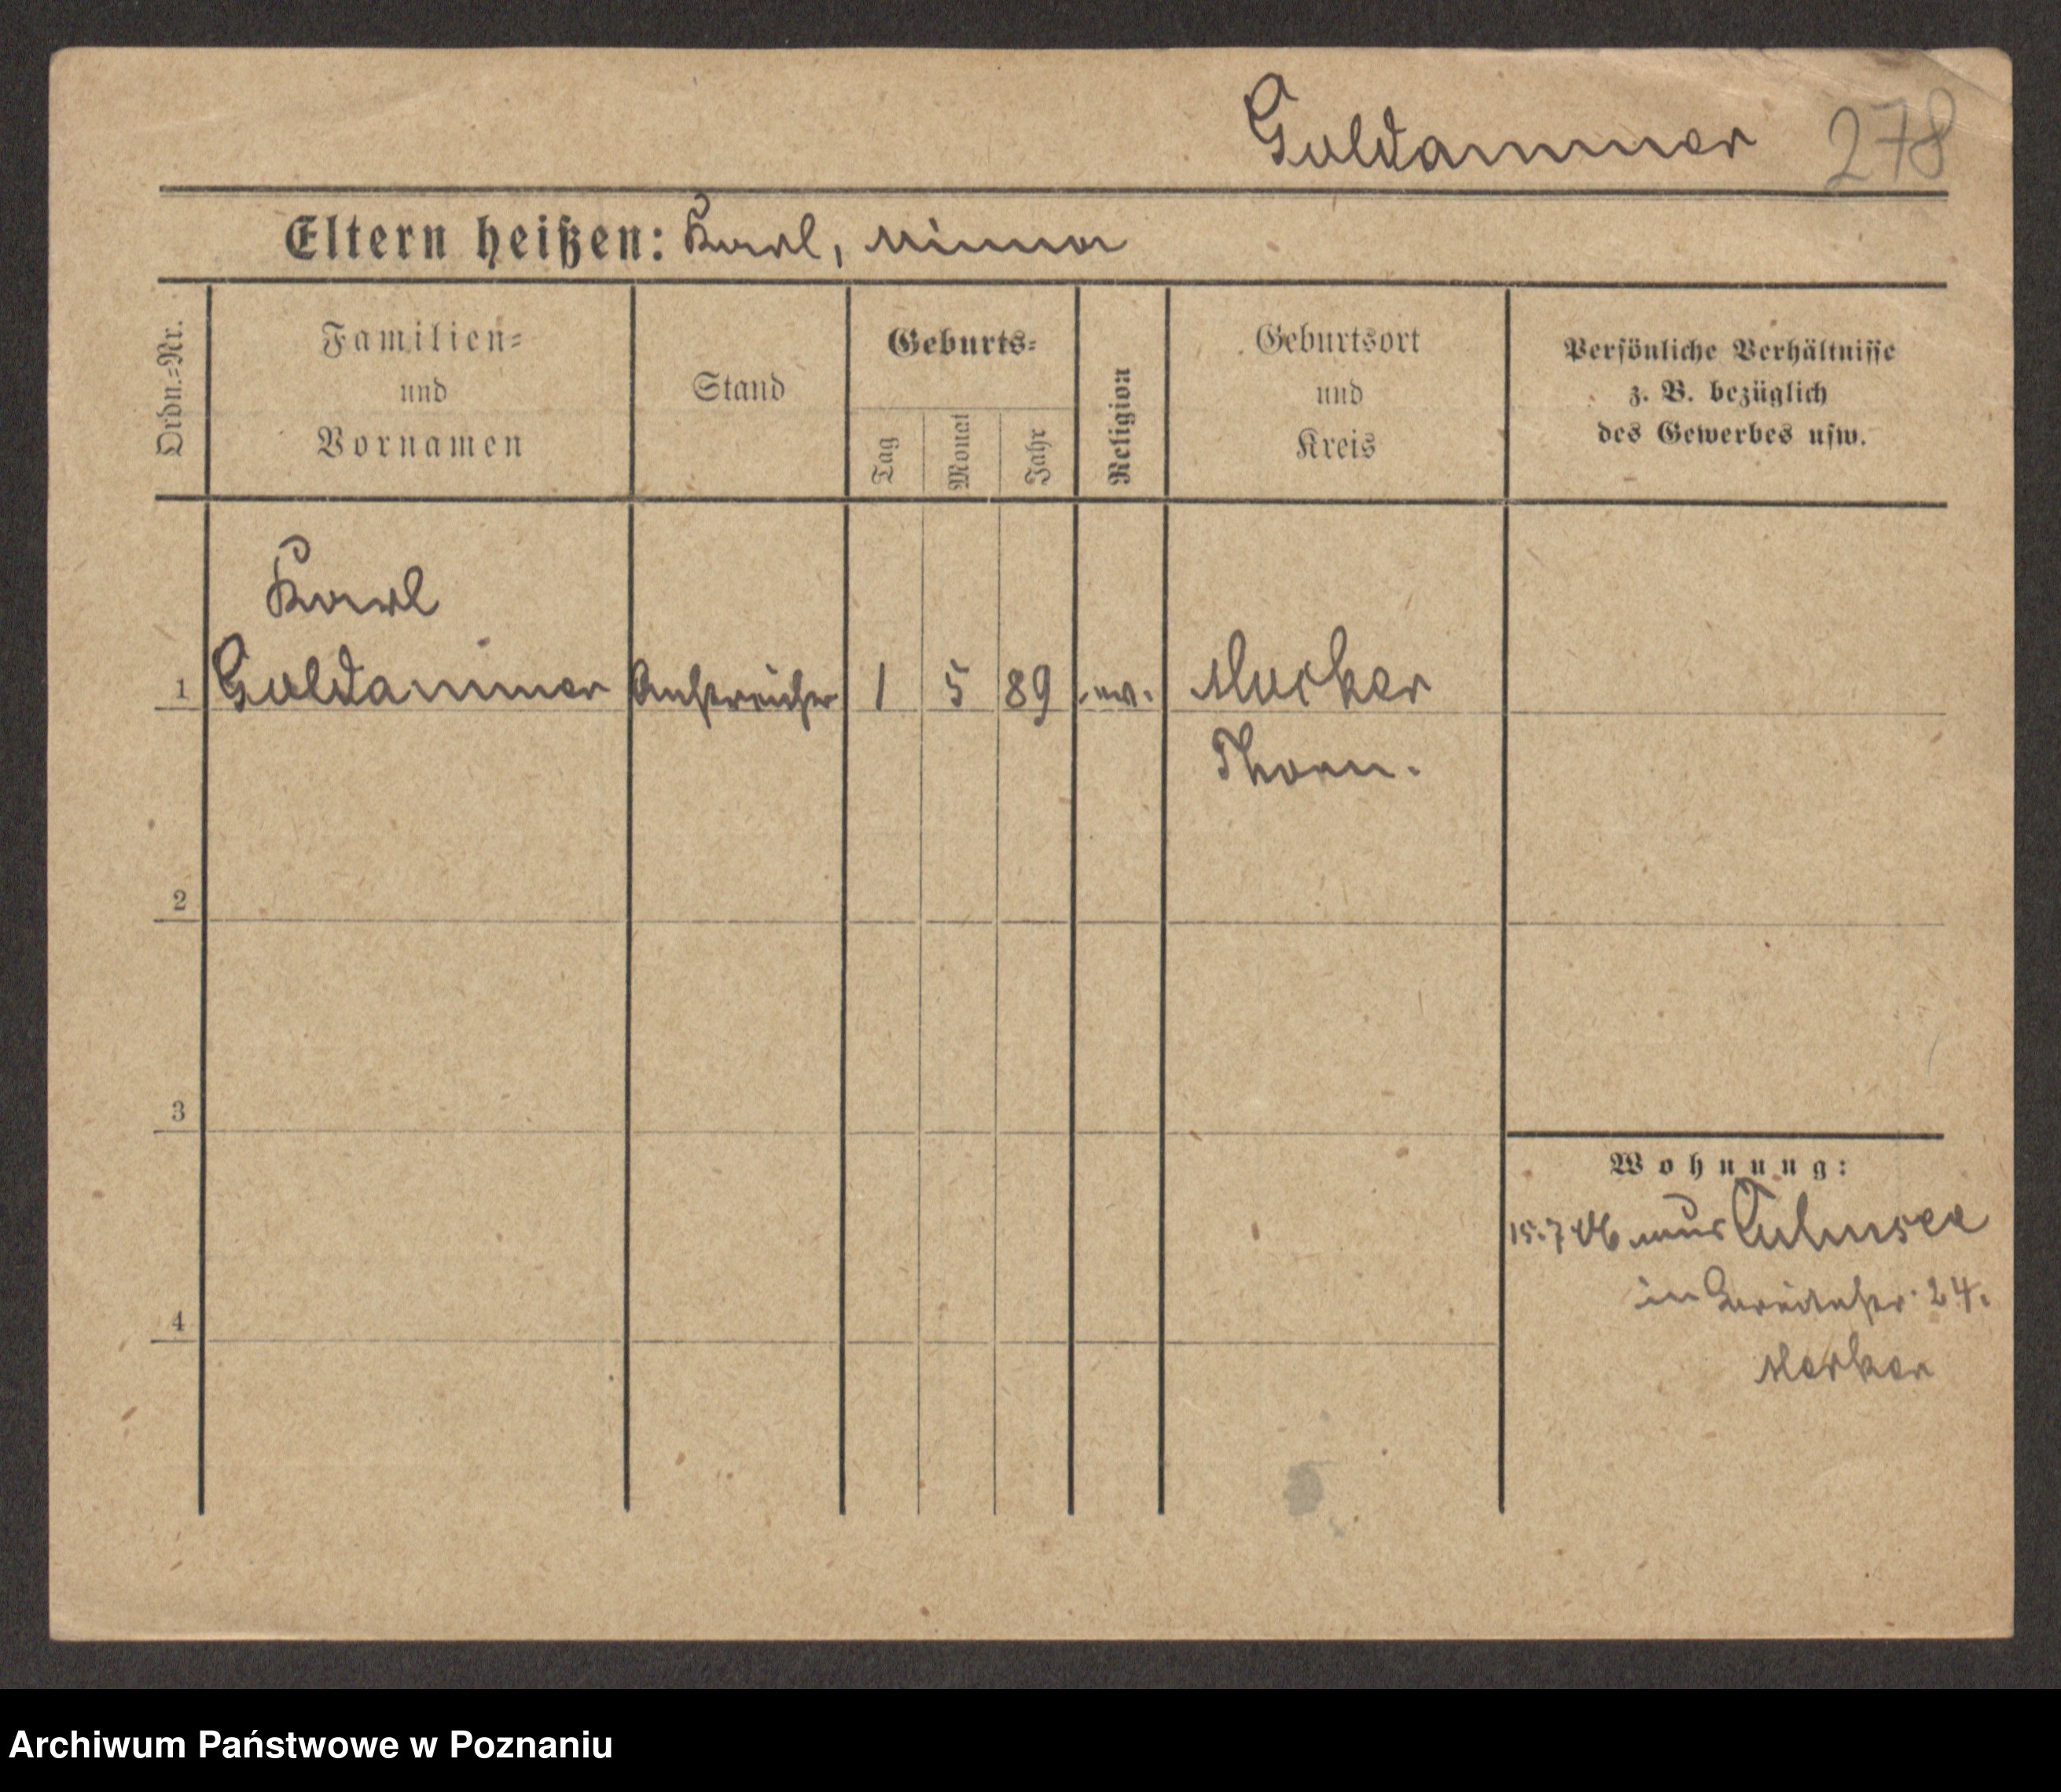 Goldammer 278
Eltern heißen: Karl, Minna
Ordn.=Nr.
Familien=
und
Vornamen
Stand
Geburts=
Tag
Monat
Jahr
Religion
Geburtsort
und
Kreis
Persönliche Verhältnisse
z. B. bezüglich
des Gewerbes usw.
Karl
1 Goldammer Anstreicher 1 5 89 ev. Mocker
Thorn.
2
3
4
Wohnung:
15.7 aus Culmsee
in 24.
Mocker
Archiwum Państwowe w Poznaniu